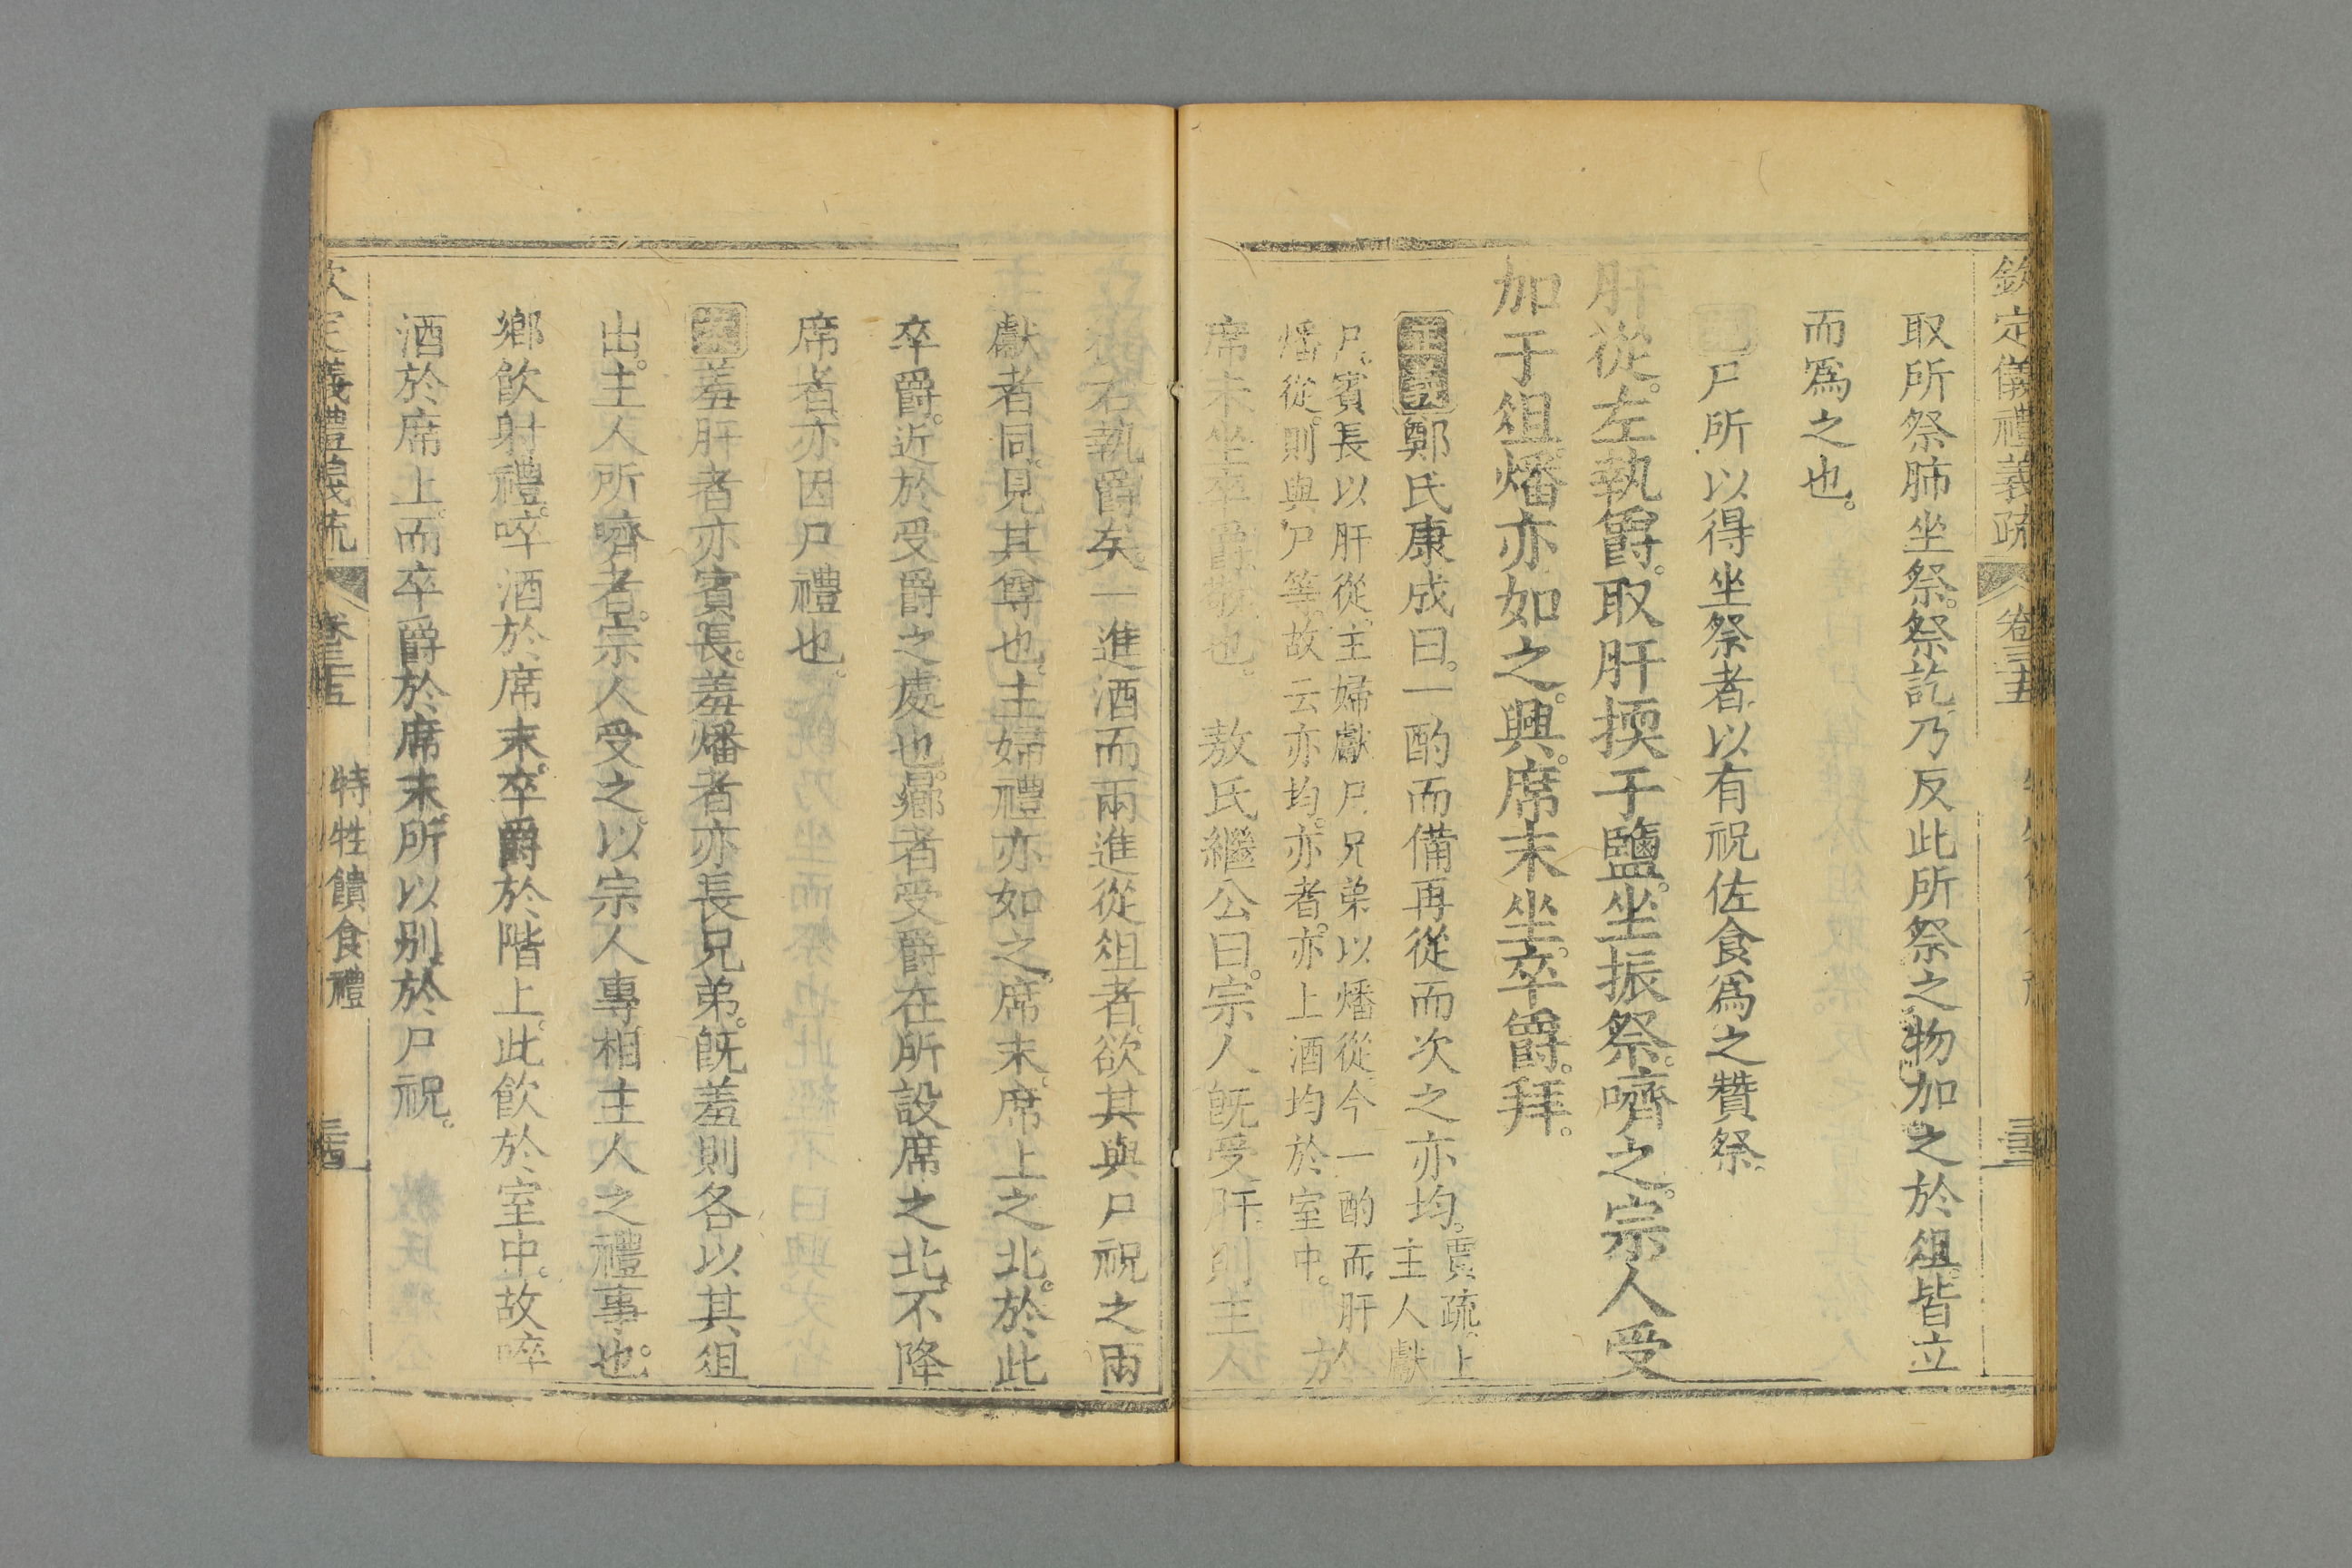 欽定儀禮義疏 卷三十五
取所祭肺坐祭。祭訖乃反此所祭之物加之於俎。皆立
而爲之也。
尸所以得坐祭者以有祝佐食爲之贊祭。
肝從。左執爵。取肝擩于鹽。坐振祭。嚌之。宗人受
加于俎。燔亦如之。興。席末坐。卒爵。拜。
正義鄭氏康成曰。一酌而備再從而次之亦均。賈疏。上
主人獻
尸。賓長以肝從。主婦獻尸。兄弟以燔從。今一酌而肝
燔從。則與尸等。故云亦均。亦者。亦上酒均於室中。
席末坐卒爵敬也。 敖氏繼公曰。宗人旣受肝則主人
右執爵矣一進酒而兩進從俎者。欲其與尸祝之兩
獻者同。見其尊也。主婦禮亦如之。席末。席上之北。於此
卒爵。近於受爵之處也。鄉者受爵在所設席之北。不降
席者。亦因尸禮也。
案羞肝者亦賓長。羞燔者亦長兄弟。旣羞則各以其俎
出。主人所嚌者。宗人受之。以宗人專相主人之禮事也。
鄉飲射禮。啐酒於席末。卒爵於階上。此飲於室中。故啐
酒於席上。而卒爵於席末。所以别於尸祝。
特牲饋食禮